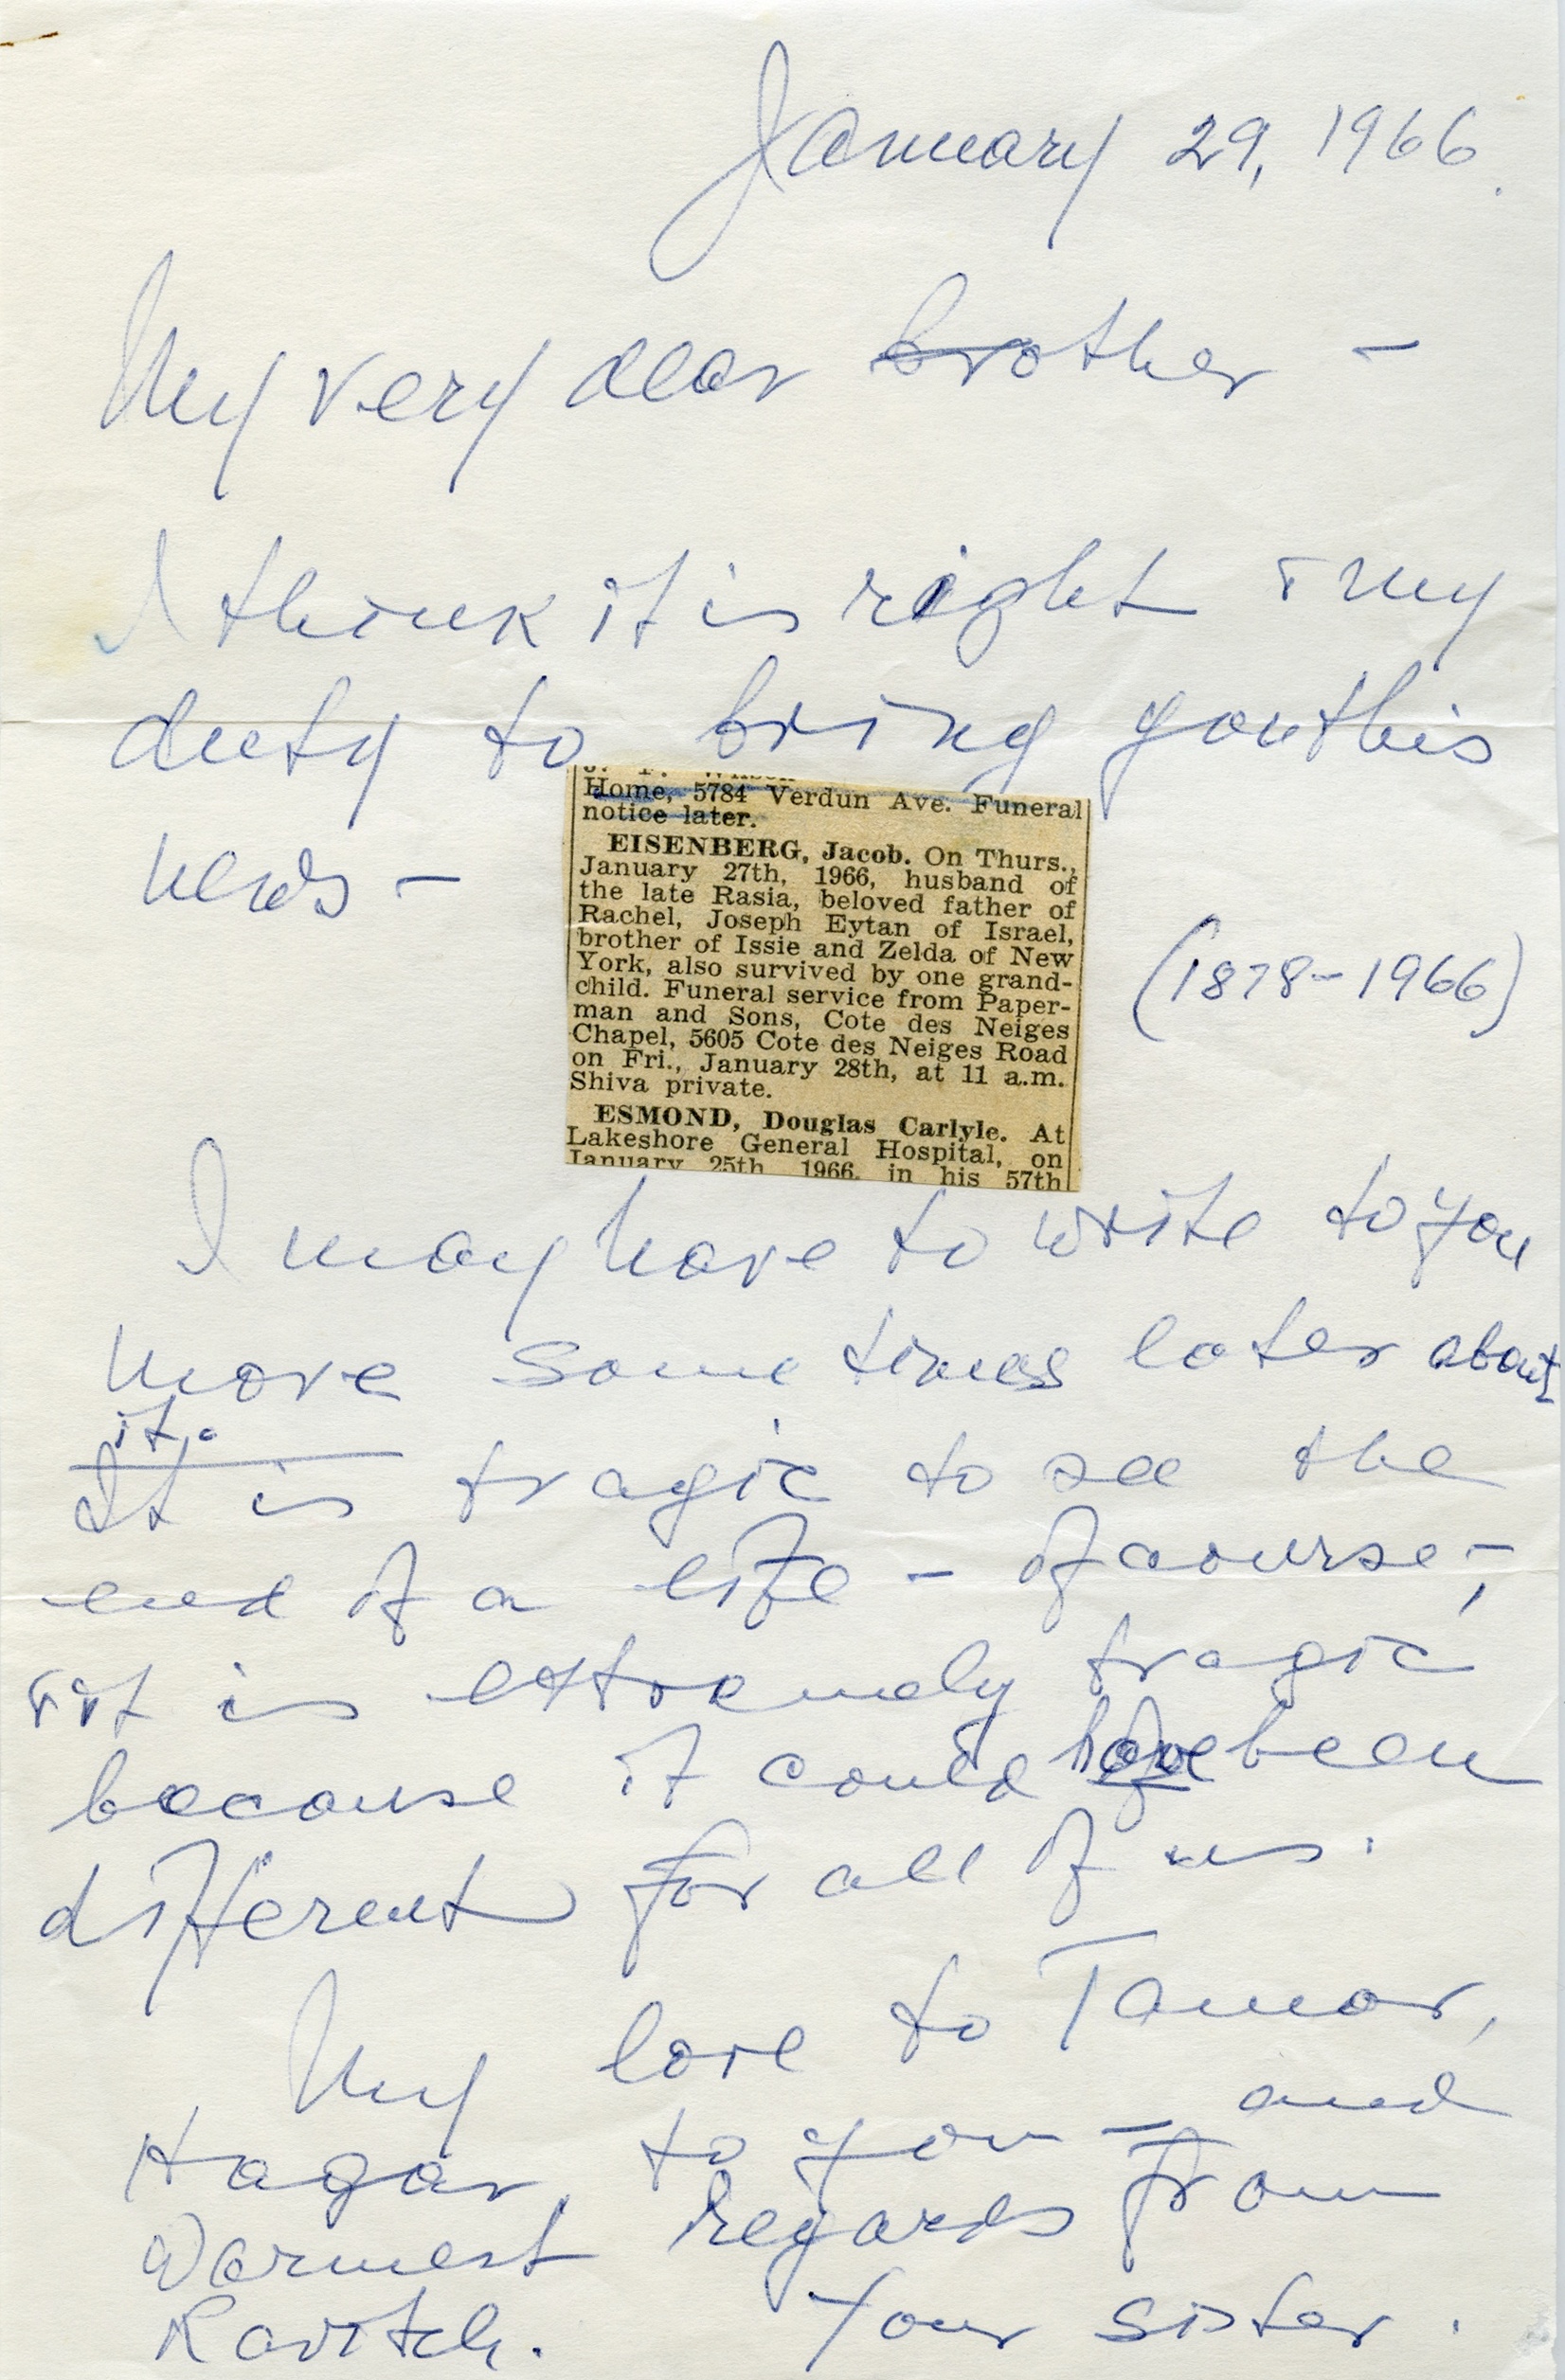 January 29, 1966.
My very dear brother –
I think it is right & my
duty to bring you this
news –
Home, 5784 Verdun Ave. Funeral
notice later.
EISENBERG, Jacob. On Thurs.,
January 27th, 1966, husband of
the late Rasia, beloved father of
Rachel, Joseph Eytan of Israel,
brother of Issie and Zelda of New
York, also survived by one grand-
child. Funeral service from Paper-
man and Sons, Cote des Neiges
Chapel, 5605 Cote des Neiges Road
on Fri., January 28th, at 11 a.m.
Shiva private.
ESMOND, Douglas Carlyle. At
Lakeshore General Hospital, on
January 25th, 1966, in his 57th
(1878–1966)
I may have to write to you
more some times later about
it.
It is tragic to see the
end of a life – of course, –
& it is extremely tragic
because it could have been
different for all of us.
My love to Tamar,
Hagar, to you – and
Warmest regards from
Ravitch. Your sister.